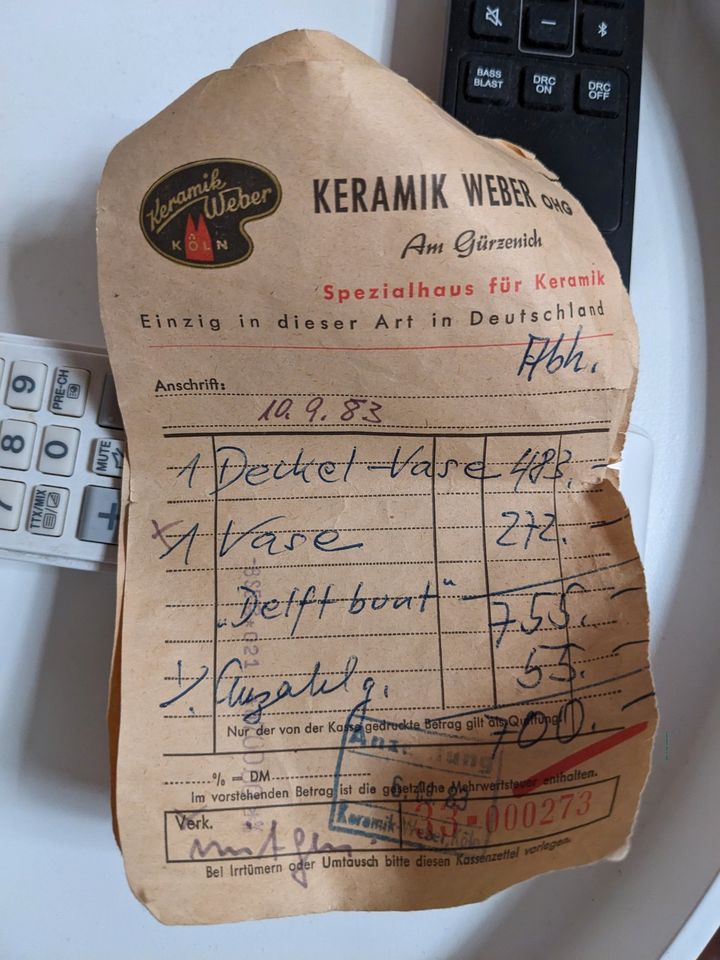 BASS BLAST
DRC ON
DRC OFF
Keramik
Weber
KÖLN
KERAMIK WEBER OHG
Am Gürzenich
Spezialhaus für Keramik
Einzig in dieser Art in Deutschland
Abh.
Anschrift:
10.9.83
1 Deckel-Vase 483.-
x1 Vase 272.-
„Delft bont" 755.-
·/. Anzahlg. 55.-
Nur der von der Kasse gedruckte Betrag gilt als Quittung! 700.-
% = DM
Im vorstehenden Betrag ist die gesetzliche Mehrwertsteuer enthalten.
Keramik-Weber, Köln
Verk.
33-000273
mitgen.
Bei Irrtümern oder Umtausch bitte diesen Kassenzettel vorlegen.
9
PRE-CH
8
0
MUTE
7
TTX/MIX
+